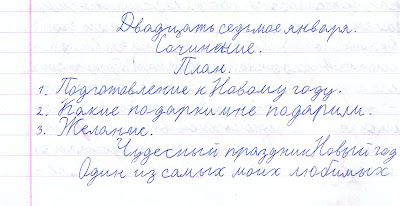 Двадцать седьмое января.
Сочинение.
План.
1. Подготовление к Новому году.
2. Какие подарки мне подарили.
3. Желание.
Чудесный праздник Новый год
Один из самых моих любимых